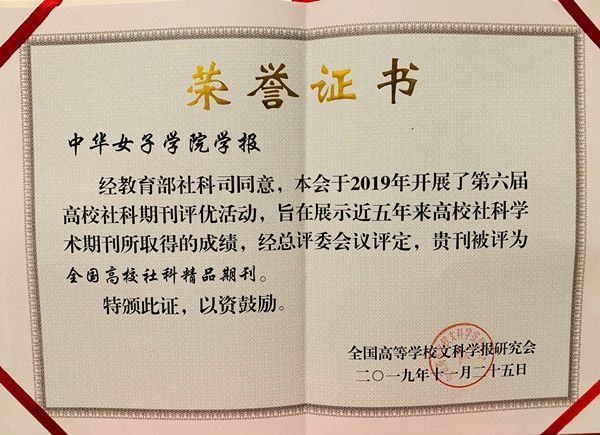 荣誉证书
中华女子学院学报
经教育部社科司同意，本会于2019年开展了第六届
高校社科期刊评优活动，旨在展示近五年来高校社科学
术期刊所取得的成绩，经总评委会议评定，贵刊被评为
全国高校社科精品期刊。
特颁此证，以资鼓励。
全国高等学校文科学报研究会
二〇一九年十一月二十五日